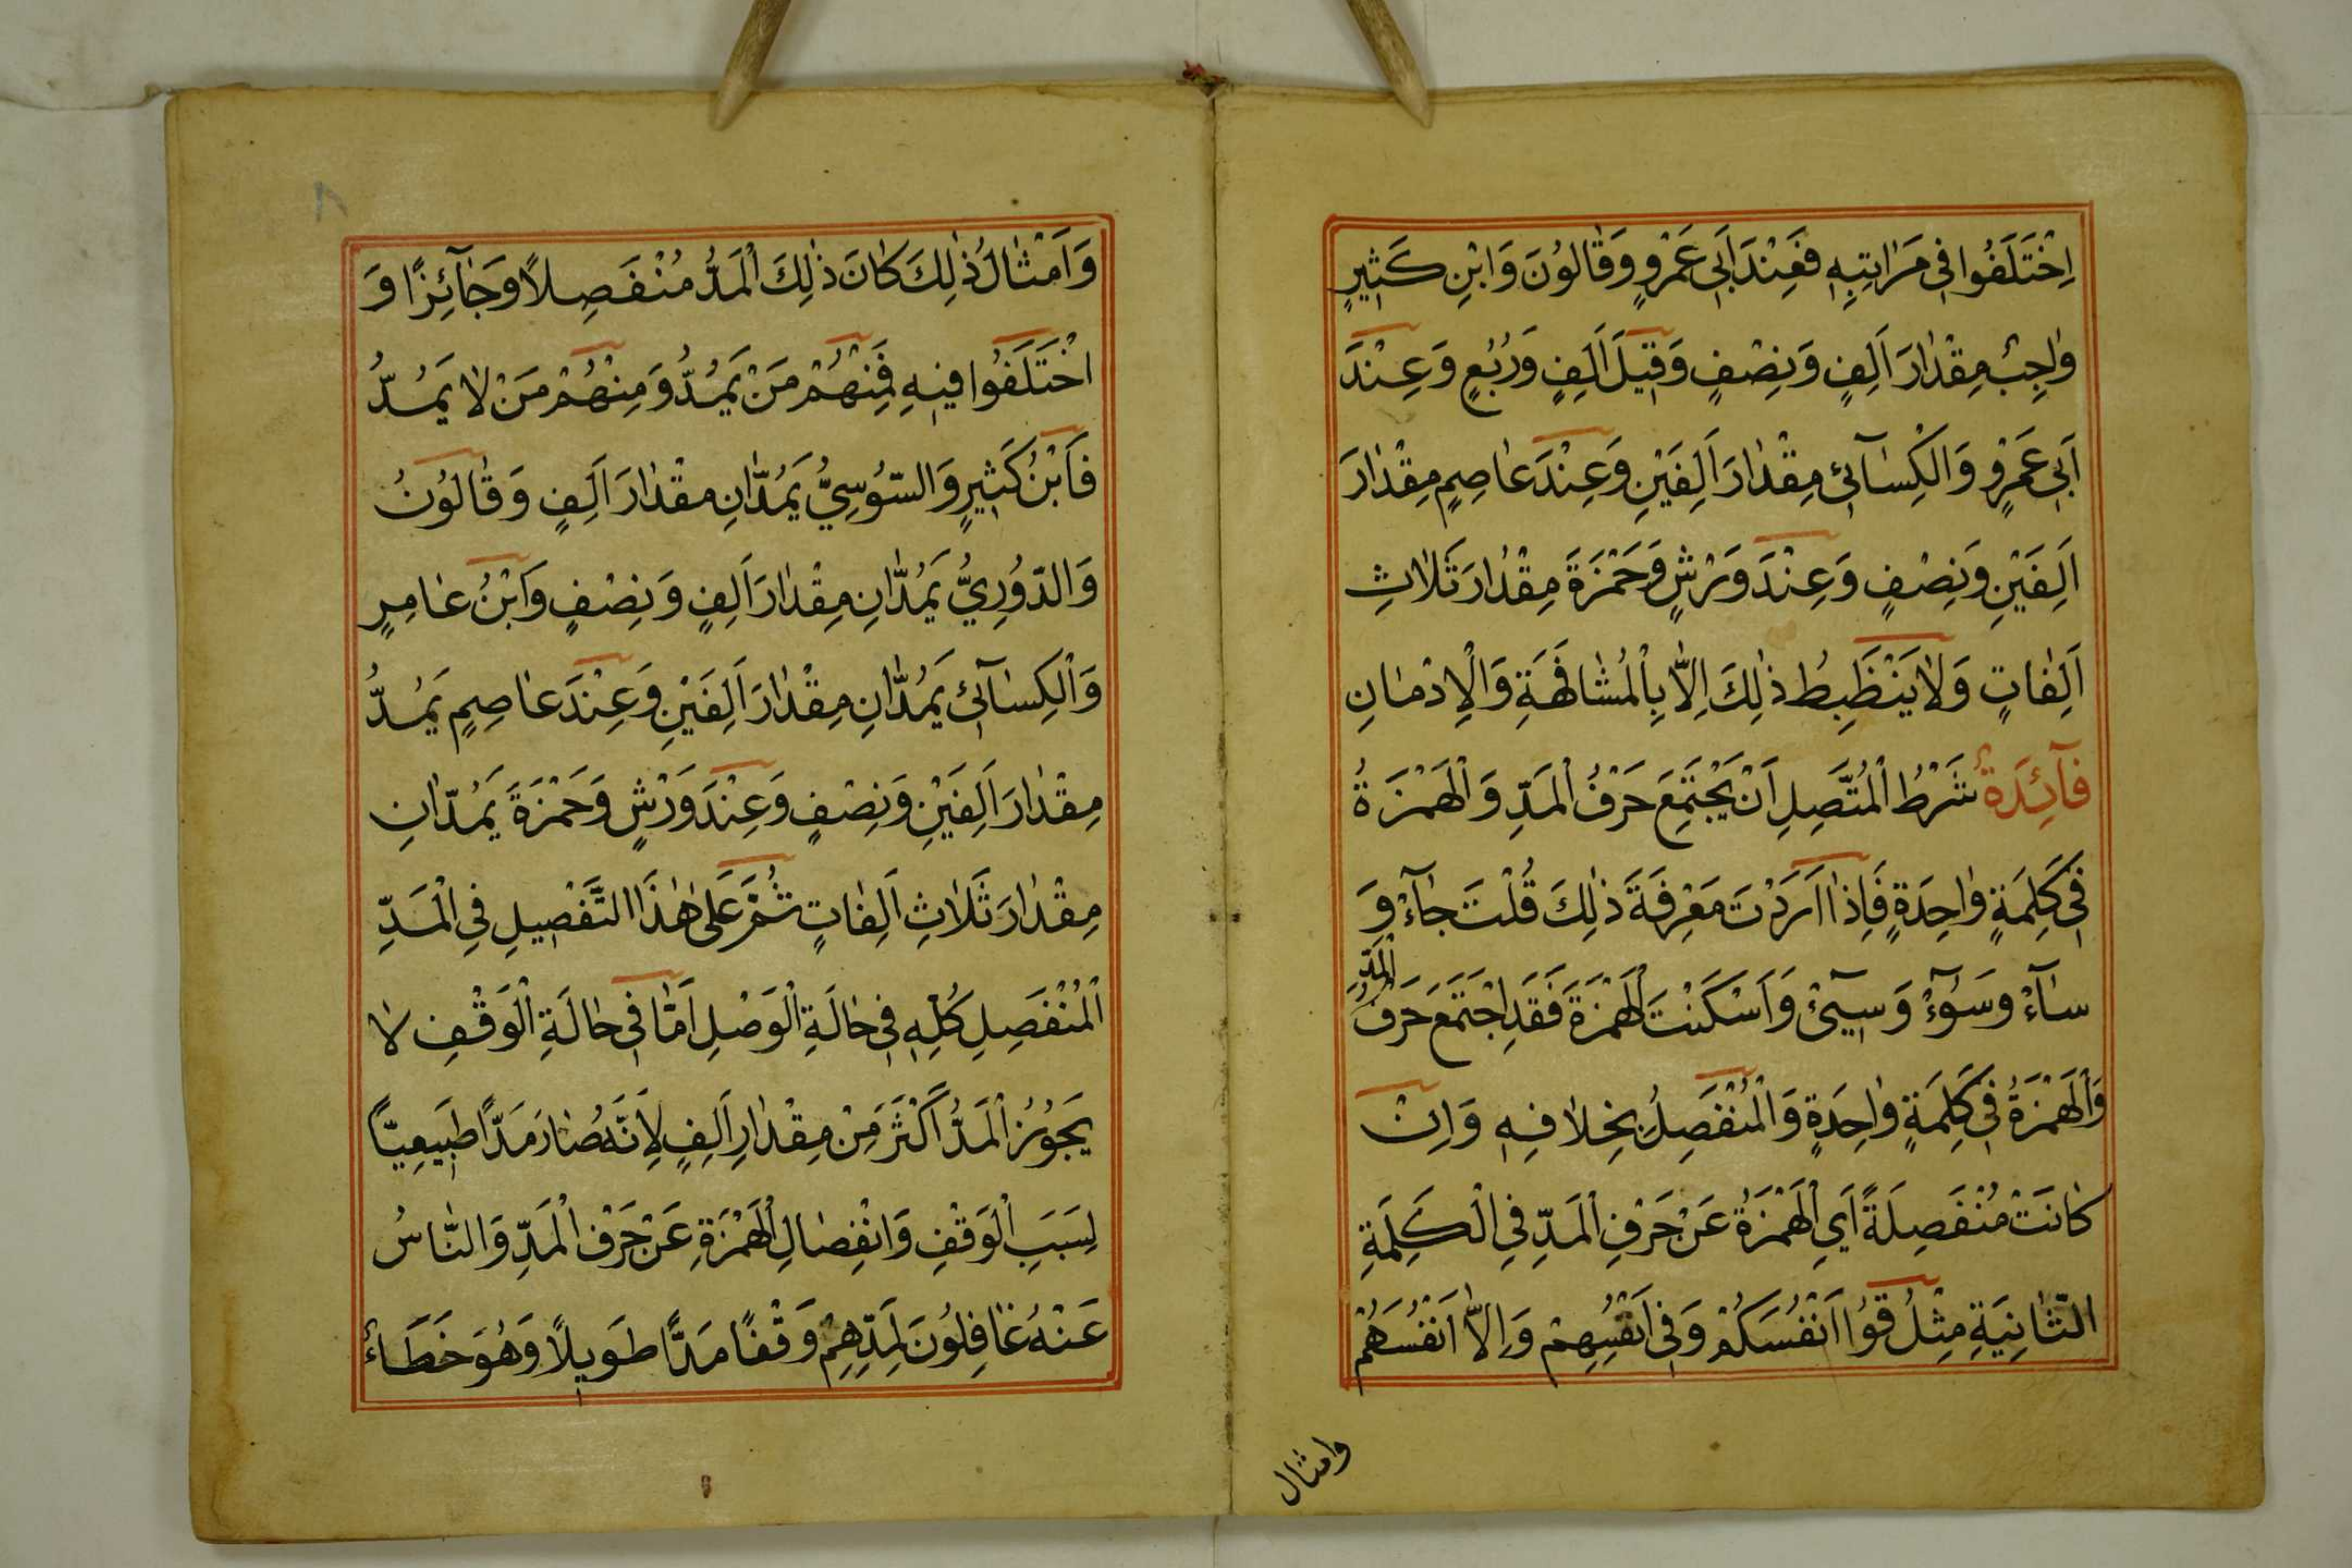 اِخْتَلَفُوا فِي مَرَاتِبِهٖ فَعِنْدَ اَبِي عَمْرٍو وَقَالُونَ وَابْنِ كَثِيرٍ
وَاجِبٌ مِقْدَارَ اَلِفٍ وَنِصْفٍ وَقِيلَ اَلِفٍ وَرُبُعٍ وَعِنْدَ
اَبِي عَمْرٍو وَالْكِسَآئِي مِقْدَارَ اَلِفَيْنِ وَعِنْدَ عَاصِمٍ مِقْدَارَ
اَلِفَيْنِ وَنِصْفٍ وَعِنْدَ وَرْشٍ وَحَمْزَةَ مِقْدَارَ ثَلَاثِ
اَلِفَاتٍ وَلَا يَنْظَبِطُ ذٰلِكَ اِلَّا بِالْمُشَافَهَةِ وَالْاِدْمَانِ
فَآئِدَةٌ شَرْطُ الْمُتَّصِلِ اَنْ يَجْتَمِعَ حَرْفُ الْمَدِّ وَالْهَمْزَةُ
فِي كَلِمَةٍ وَاحِدَةٍ فَاِذَا اَرَدْتَ مَعْرِفَةَ ذٰلِكَ قُلْتَ جَآءْ وَ
سَآءْ وَسُوٓءْ وَسِيٓئْ وَاَسْكَنْتَ الْهَمْزَةَ فَقَدِ اجْتَمَعَ حَرْفُ الْمَدِّ
وَالْهَمْزَةُ فِي كَلِمَةٍ وَاحِدَةٍ وَالْمُنْفَصِلُ بِخِلَافِهٖ وَاِنْ
كَانَتْ مُنْفَصِلَةً اَيِ الْهَمْزَةُ عَنْ حَرْفِ الْمَدِّ فِي الْكَلِمَةِ
الثَّانِيَةِ مِثْلُ قُوا اَنْفُسَكُمْ وَفِي اَنْفُسِهِمْ وَاِلَّا اَنْفُسَهُمْ
وامثال
وَاَمْثَالُ ذٰلِكَ كَانَ ذٰلِكَ الْمَدُّ مُنْفَصِلًا وَجَآئِزًا وَ
اخْتَلَفُوا فِيهِ فَمِنْهُمْ مَنْ يَمُدُّ وَمِنْهُمْ مَنْ لَا يَمُدُّ
فَابْنُ كَثِيرٍ وَالسُّوسِيُّ يَمُدَّانِ مِقْدَارَ اَلِفٍ وَقَالُونُ
وَالدُّورِيُّ يَمُدَّانِ مِقْدَارَ اَلِفٍ وَنِصْفٍ وَابْنُ عَامِرٍ
وَالْكِسَآئِي يَمُدَّانِ مِقْدَارَ اَلِفَيْنِ وَعِنْدَ عَاصِمٍ يَمُدُّ
مِقْدَارَ اَلِفَيْنِ وَنِصْفٍ وَعِنْدَ وَرْشٍ وَحَمْزَةَ يَمُدَّانِ
مِقْدَارَ ثَلَاثِ اَلِفَاتٍ ثُمَّ عَلَى هٰذَا التَّفْصِيلِ فِي الْمَدِّ
الْمُنْفَصِلِ كُلِّهٖ فِي حَالَةِ الْوَصْلِ اَمَّا فِي حَالَةِ الْوَقْفِ لَا
يَجُوزُ الْمَدُّ اَكْثَرَ مِنْ مِقْدَارِ اَلِفٍ لِاَنَّهُ صَارَ مَدًّا طَبِيعِيًّا
لِسَبَبِ الْوَقْفِ وَانْفِصَالِ الْهَمْزَةِ عَنْ حَرْفِ الْمَدِّ وَالنَّاسُ
عَنْهُ غَافِلُونَ لِمَدِّهِمْ وَقْفًا مَدًّا طَوِيلًا وَهُوَ خَطَاءٌ
٨